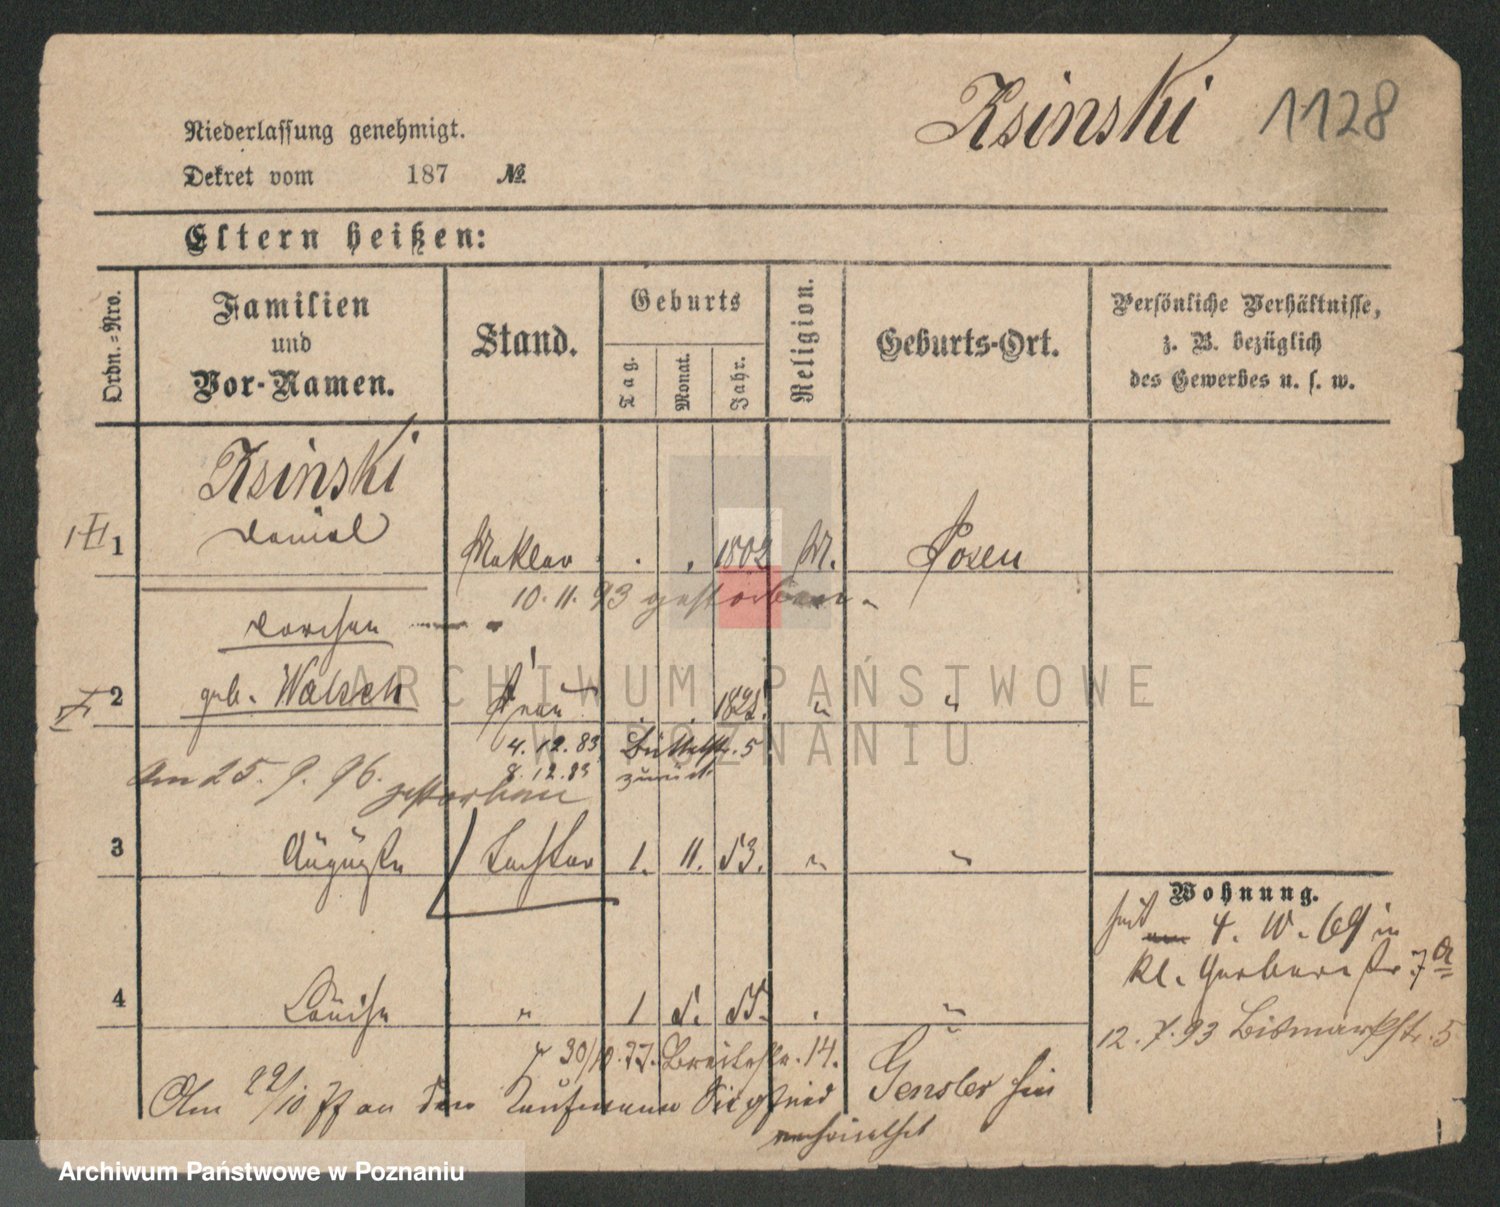 Ksinski 1128
Niederlassung genehmigt.
Dekret vom 187 №
Eltern heißen:
Ordn.-Nro.
Familien
und
Vor-Namen.
Stand.
Geburts
Tag. Monat. Jahr.
Religion.
Geburts-Ort.
Persönliche Verhältnisse,
z. B. bezüglich
des Gewerbes u. s. w.
Ksinski
1 Daniel Makler . . 1802 M. Posen
10. 11. 93 gestorben.
Dorchen
2 geb. Walsch Frau . . " "
4. 12. 83 Büttelstr. 5
8. 12. 83 zurück
Am 25. 9. 96. gestorben
3 Auguste Tochter 1. 11. 53. " "
Wohnung.
seit 4. 10. 69 in
kl. Gerberstr 7a
4 Louise " 1 5. 55. . "
12. 7. 93 Bismarckstr. 5
30/10. 77. Breitestr. 14.
Am 22/10 77 an den Kaufmann Siegfried Gensler hier
verheirathet
ARCHIWUM PAŃSTWOWE
W POZNANIU
Archiwum Państwowe w Poznaniu